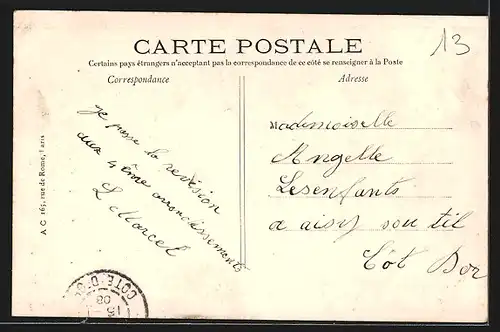 13
CARTE POSTALE
Certains pays étrangers n'acceptant pas la correspondance de ce côté se renseigner à la Poste
Correspondance
Adresse
je passe la revision
aux 4ème arrondissements
L Marcel
Mademoiselle
Angelle
Lesenfants
a aisy sou til
Côt Dor
A C 165, rue de Rome, Paris
COTE-D'OR
15
08